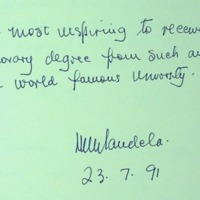 most inspiring to receive
orary degree from such an
world famous University.
NMandela.
23.7.91